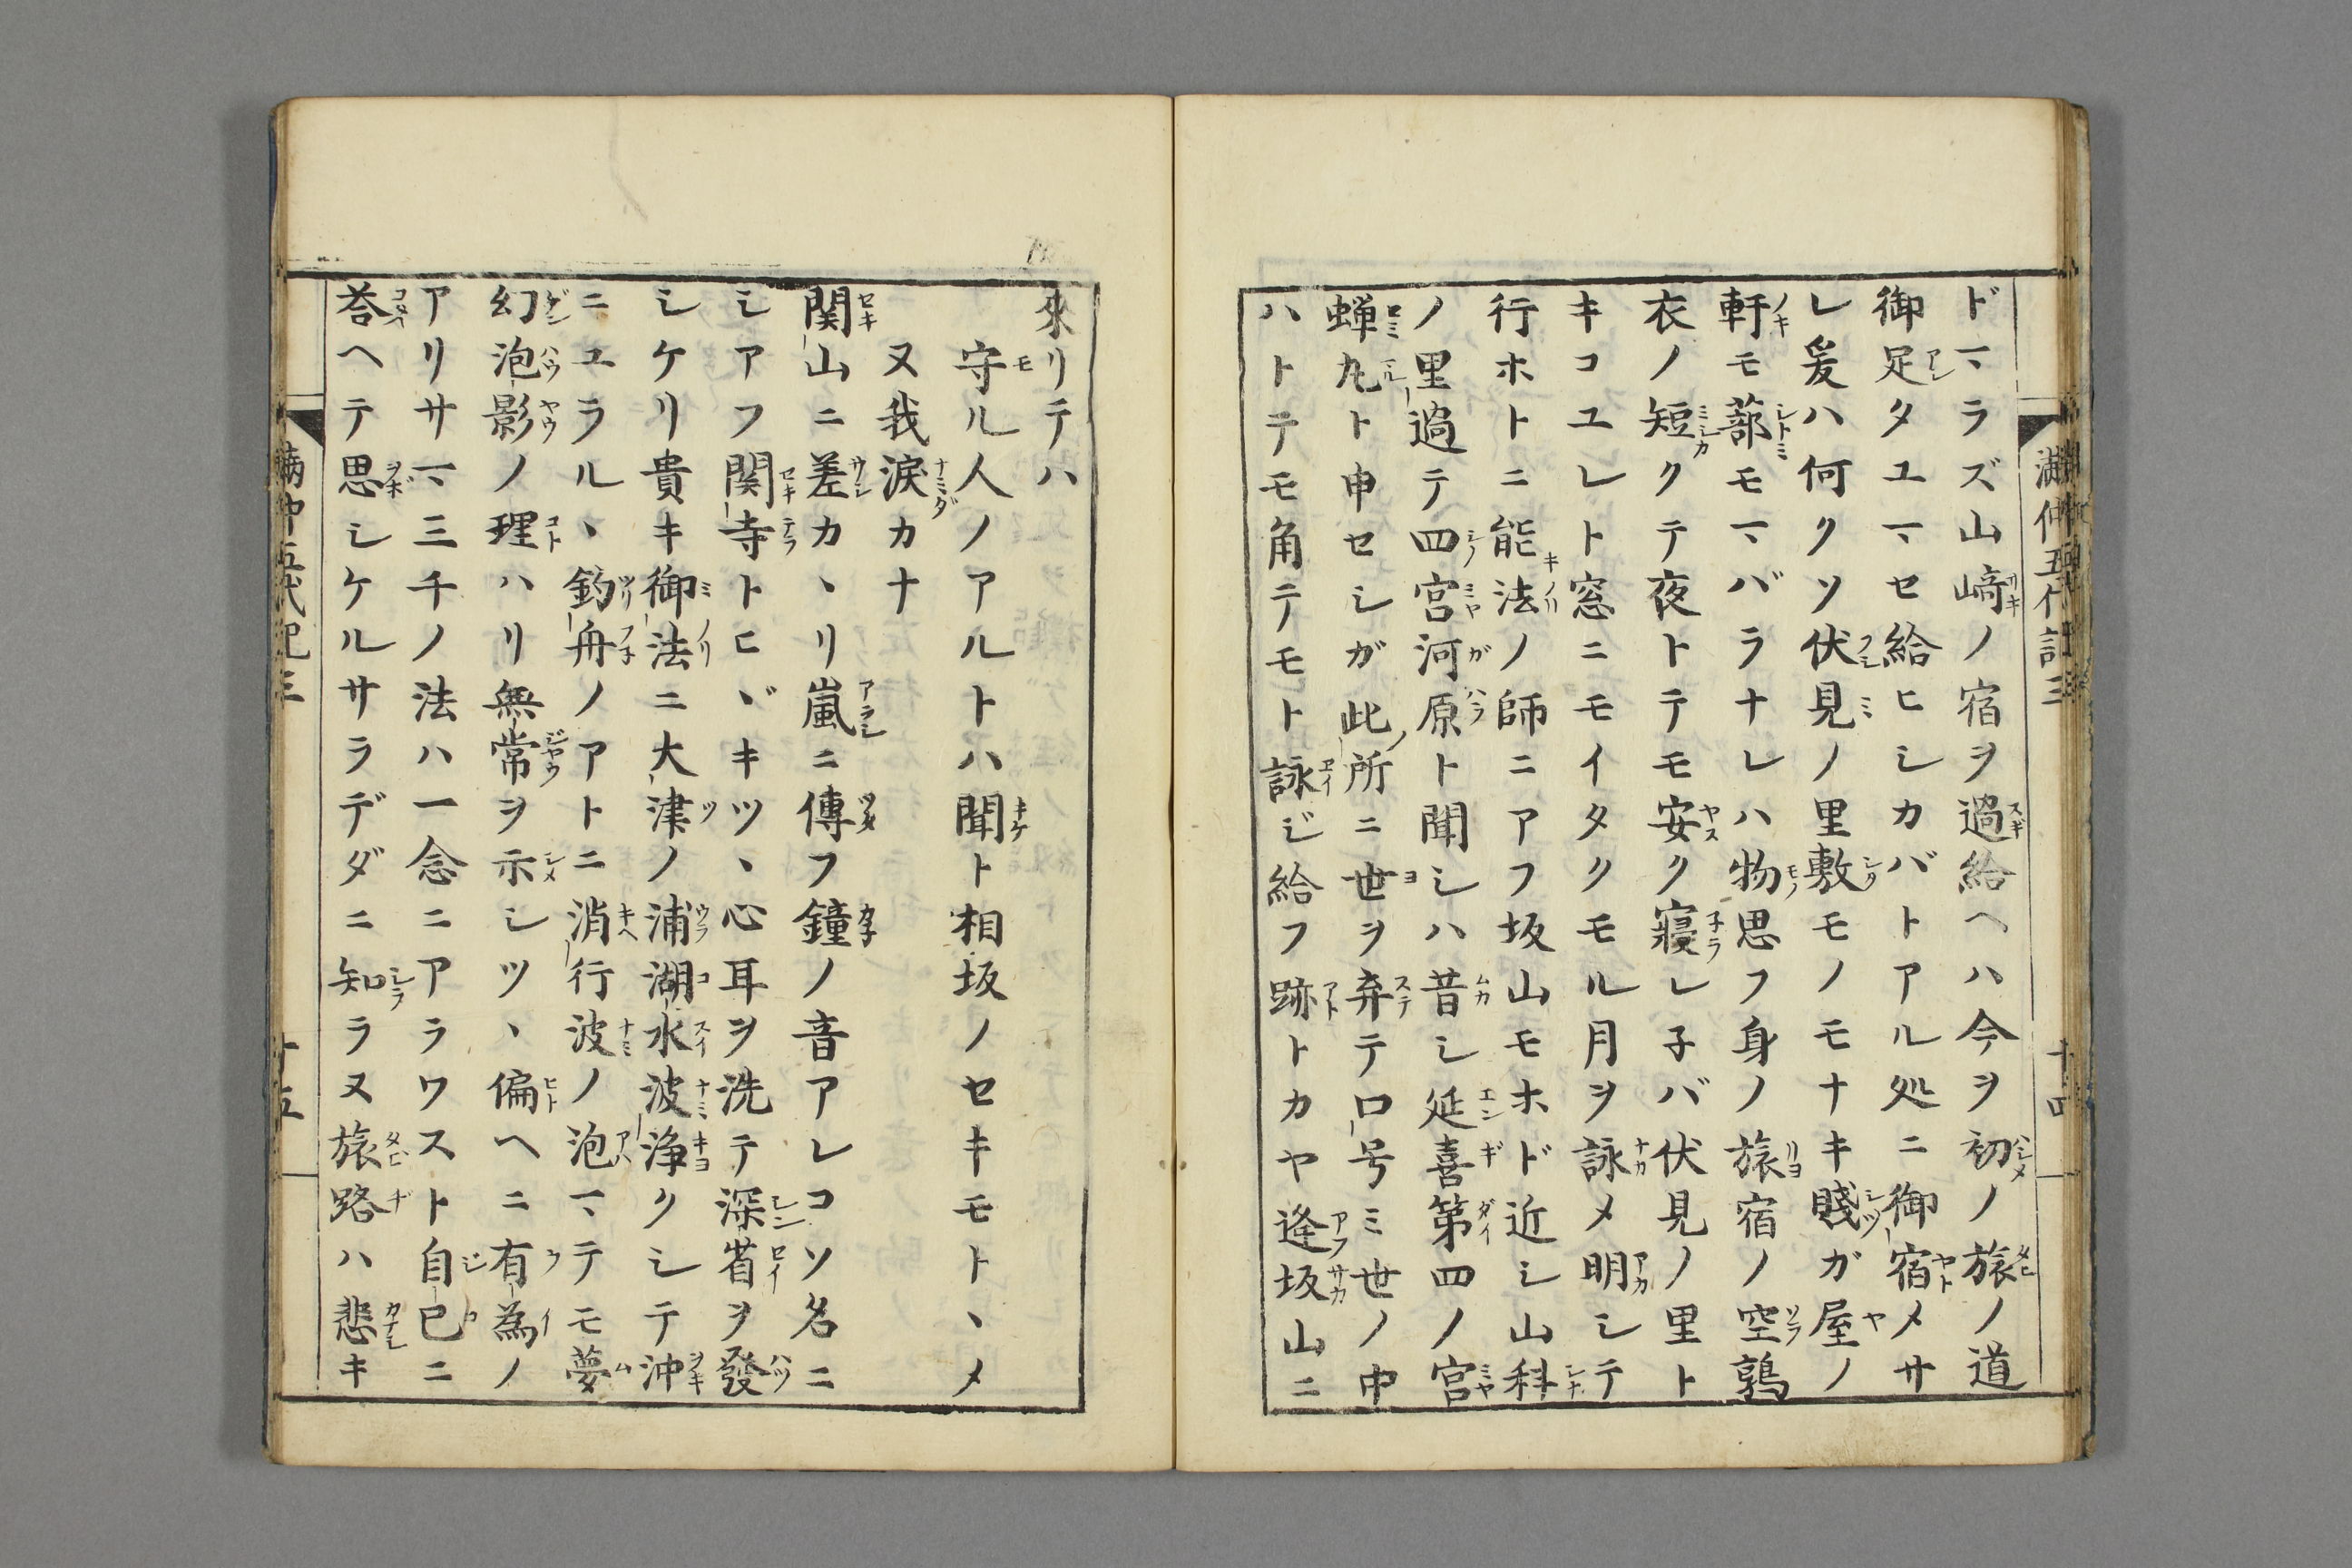 ドマラズ山﨑ノ宿ヲ過給ヘハ今ヲ初ノ旅ノ道
御足タユマセ給ヒシカバトアル処ニ御宿メサ
レ爰ハ何クソ伏見ノ里敷モノモナキ賤ガ屋ノ
軒モ蔀モマバラナレハ物思フ身ノ旅宿ノ空鶉
衣ノ短クテ夜トテモ安ク寢レ子バ伏見ノ里ト
キコユレト窓ニモイタクモル月ヲ詠メ明シテ
行ホトニ能法ノ師ニアフ坂山モホド近シ山科
ノ里過テ四宮河原ト聞シハ昔シ延喜第四ノ宮
蝉丸ト申セシガ此所ニ世ヲ弃テ口号ミ世ノ中
ハトテモ角テモト詠ジ給フ跡トカヤ逢坂山ニ
満仲五代記三
十四
來リテハ
守ル人ノアルトハ聞ト相坂ノセキモトヽメ
ヌ我涙カナ
関山ニ差カヽリ嵐ニ傳フ鐘ノ音アレコソ名ニ
シアフ関寺トヒヾキツヽ心耳ヲ洗テ深省ヲ發
シケリ貴キ御法ニ大津ノ浦湖水波浄クシテ沖
ニユラルヽ釣舟ノアトニ消行波ノ泡マテモ夢
幻泡影ノ理ハリ無常ヲ示シツヽ偏ヘニ有為ノ
アリサマ三千ノ法ハ一念ニアラワスト自己ニ
荅ヘテ思シケルサラデダニ知ラヌ旅路ハ悲キ
満仲五代記三
十五